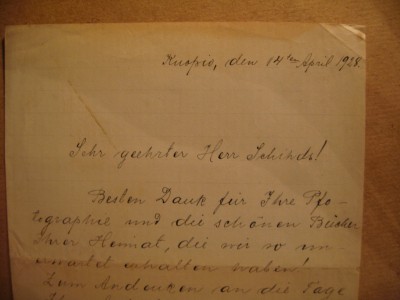 Kuopio, den 14ten April 1928.
Sehr geehrter Herr Schinds!
Besten Dank für Ihre Pfo-
tographie und die schönen Bücher
Ihrer Heimat, die wir so un-
erwartet erhalten haben!
Zum Andenken an die Tage